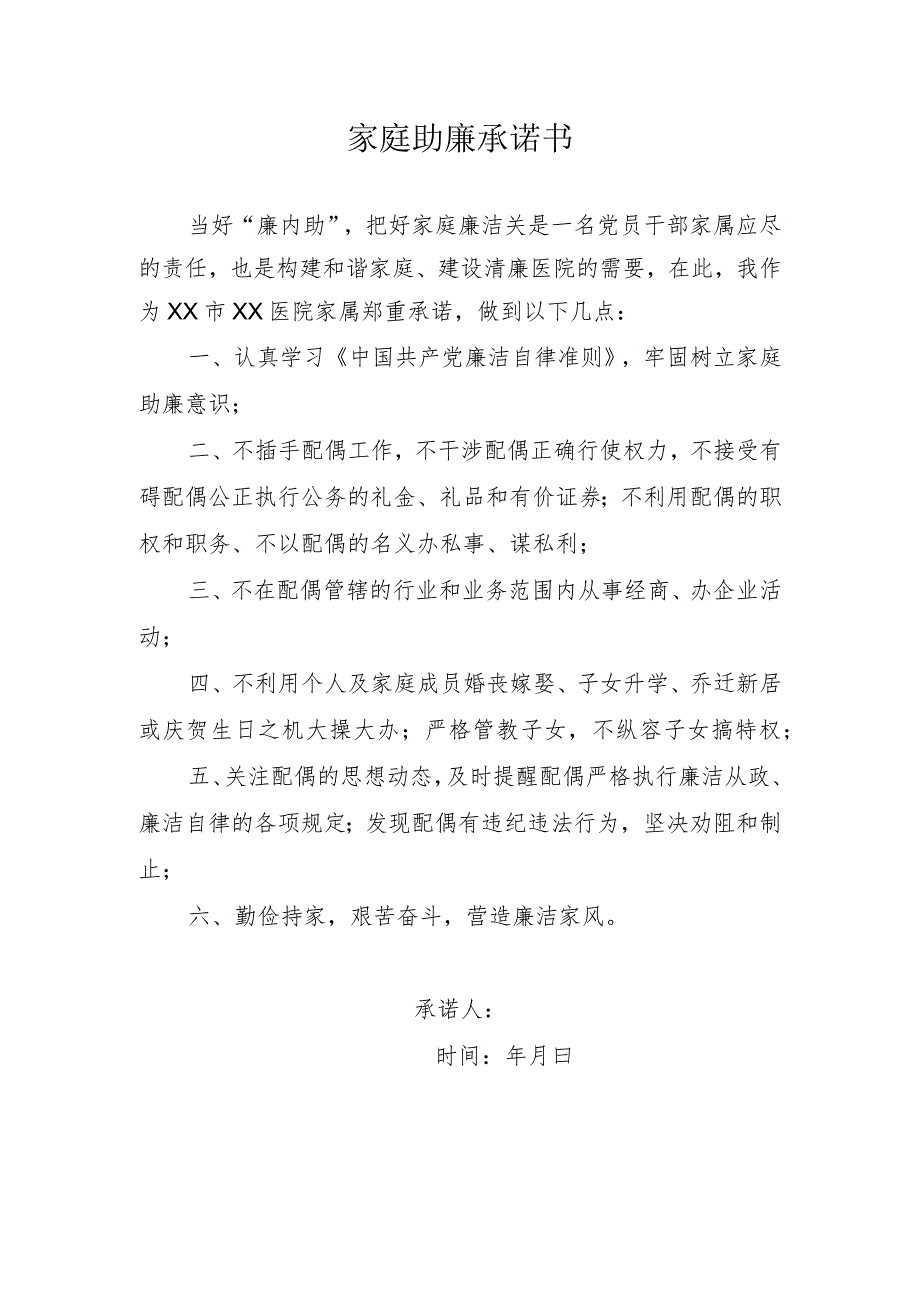 家庭助廉承诺书
当好“廉内助”，把好家庭廉洁关是一名党员干部家属应尽
的责任，也是构建和谐家庭、建设清廉医院的需要，在此，我作
为XX市XX医院家属郑重承诺，做到以下几点：
一、认真学习《中国共产党廉洁自律准则》，牢固树立家庭
助廉意识；
二、不插手配偶工作，不干涉配偶正确行使权力，不接受有
碍配偶公正执行公务的礼金、礼品和有价证券；不利用配偶的职
权和职务、不以配偶的名义办私事、谋私利；
三、不在配偶管辖的行业和业务范围内从事经商、办企业活
动；
四、不利用个人及家庭成员婚丧嫁娶、子女升学、乔迁新居
或庆贺生日之机大操大办；严格管教子女，不纵容子女搞特权；
五、关注配偶的思想动态，及时提醒配偶严格执行廉洁从政、
廉洁自律的各项规定；发现配偶有违纪违法行为，坚决劝阻和制
止；
六、勤俭持家，艰苦奋斗，营造廉洁家风。
承诺人：
时间：年月曰